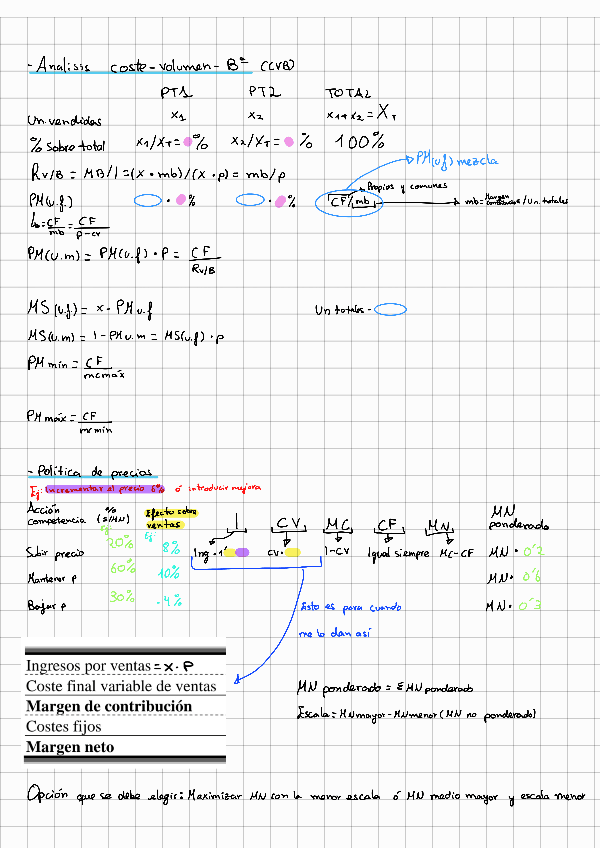 - Analisis coste-volumen-Bº (CVB)
PT1 PT2 TOTAL
Un. vendidas x1 x2 x1+x2 = XT
% Sobre total x1/XT = % x2/XT = % 100%
PM(u.f) mezcla
RV/B = MB/I = (x · mb)/(x · p) = mb/p
Propios y comunes
PM(u.f.) · % · % CF/mb mb = Margen contribución/Un. totales
↳ = CF/mb = CF/p-cv
PM(u.m) = PM(u.f) · P = CF/RV/B
MS(u.f) = x - PMu.f Un totales -
MS(u.m) = I - PMu.m = MS(u.f) · p
PM mín = CF/mcmáx
PM máx = CF/mcmín
- Política de precios
Ej: Incrementar el precio 6% ó introducir mejora
Acción competencia % (S/MN) Efecto sobre ventas I CV MC CF MN MN ponderado
Ej: Ej:
Subir precio 20% 8% Ing · 1' cv · I-CV Igual siempre MC-CF MN · 0'2
Mantener p 60% 10% MN · 0'6
Bajar p 30% -4% MN · 0'3
Esto es para cuando
me lo dan así
Ingresos por ventas = x · P
Coste final variable de ventas
Margen de contribución
Costes fijos
Margen neto
MN ponderado = Σ MN ponderado
Escala = MN mayor - MN menor (MN no ponderado)
Opción que se debe elegir: Maximizar MN con la menor escala ó MN medio mayor y escala menor